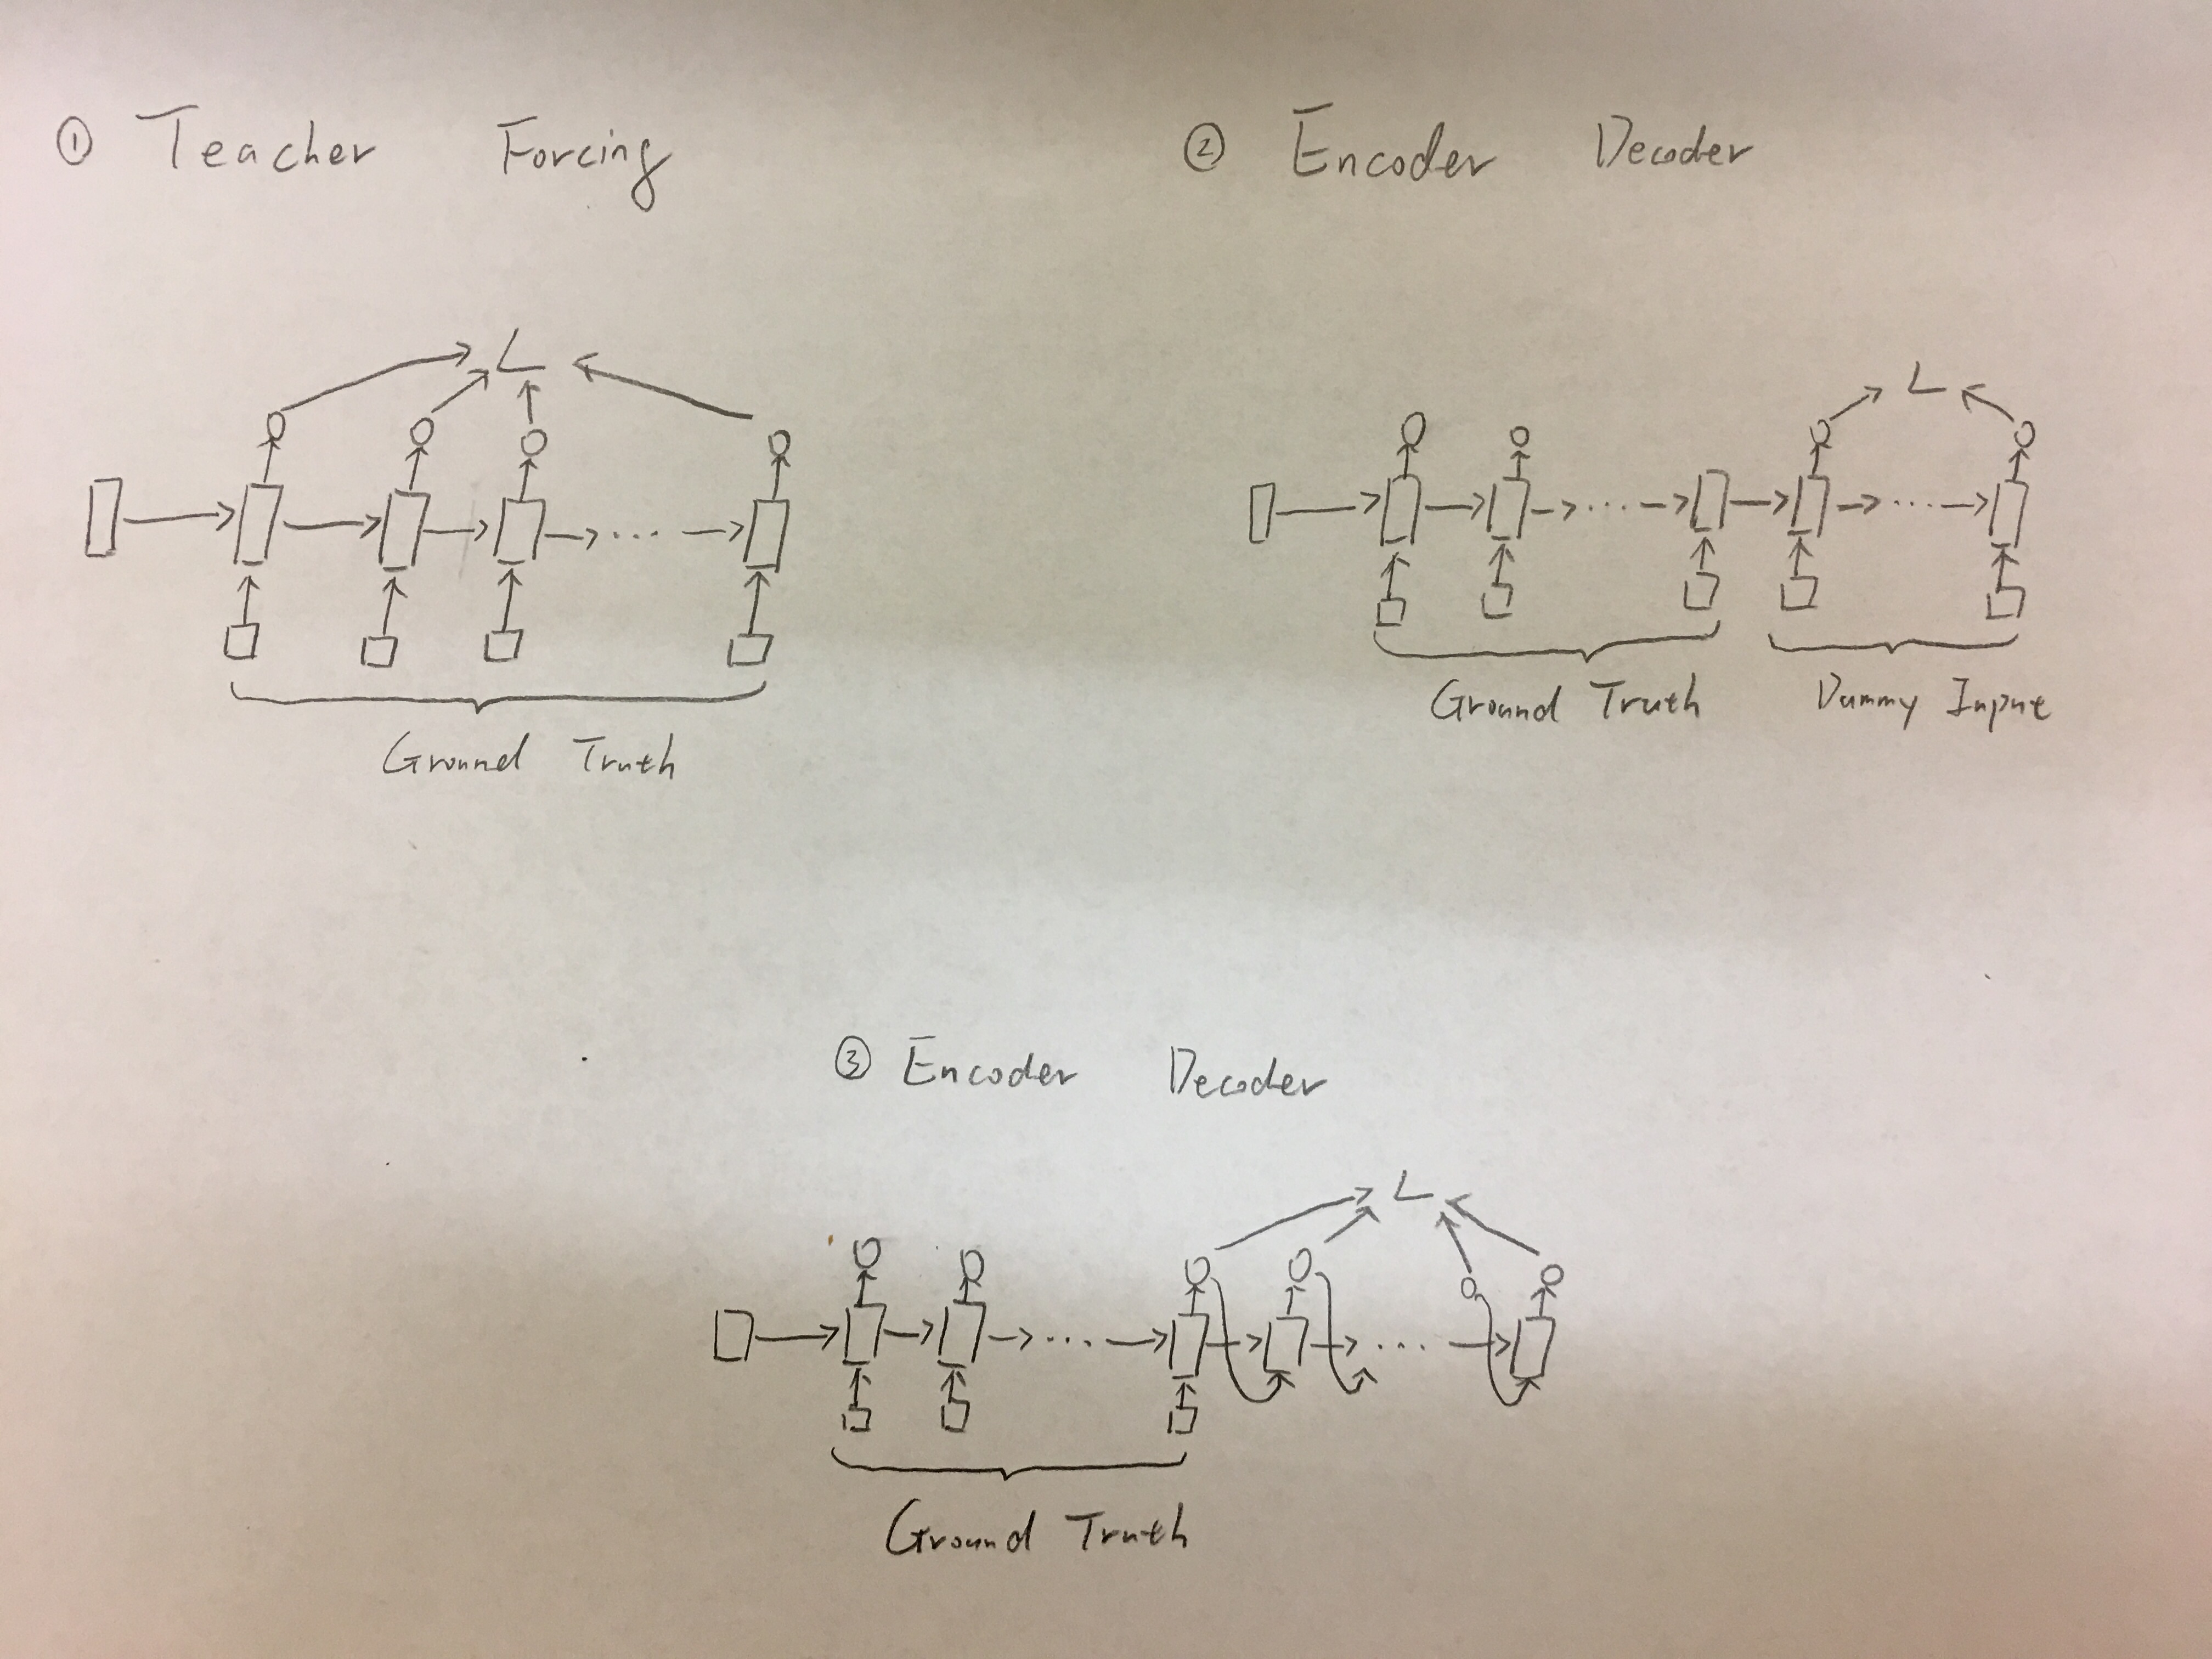 ① Teacher Forcing
L
Ground Truth
② Encoder Decoder
L
Ground Truth
Dummy Input
③ Encoder Decoder
L
Ground Truth